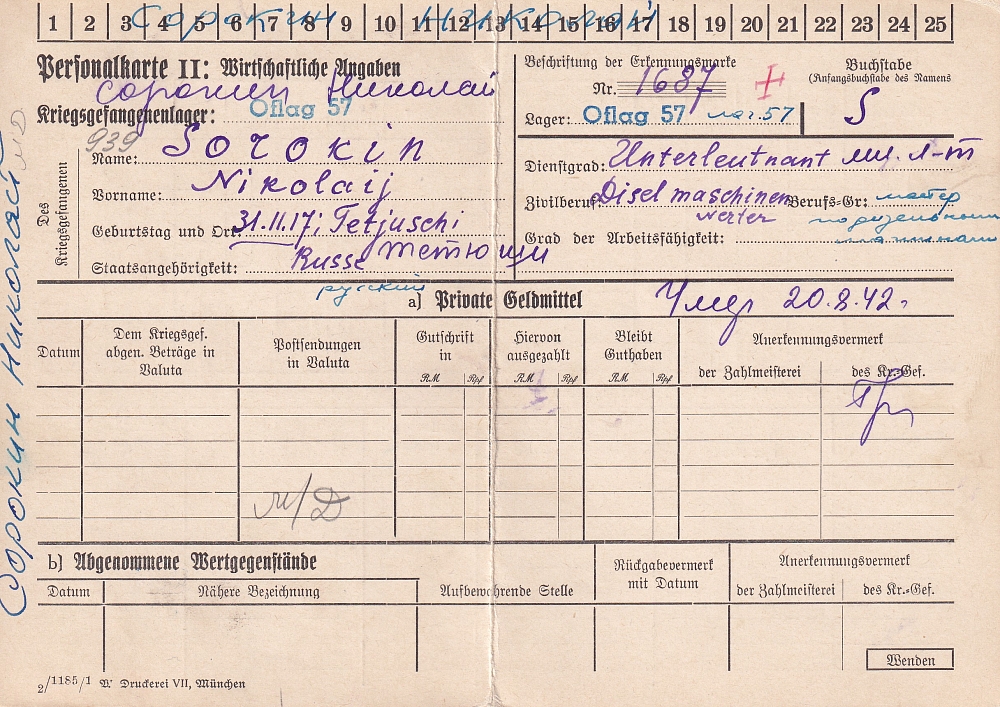 1 2 3 4 5 6 7 8 9 10 11 12 13 14 15 16 17 18 19 20 21 22 23 24 25
Сорокин Николай
Personalkarte II: Wirtschaftliche Angaben
Сорокин Николай
Kriegsgefangenenlager: Oflag 57
Beschriftung der Erkennungsmarke
Nr. 1687
Lager: Oflag 57 лаг. 57
Buchstabe
(Anfangsbuchstabe des Namens
S
939
Des Kriegsgefangenen
Name: Sorokin
Vorname: Nikolaij
Geburtstag und Ort: 31.11.17; Tetjuschi
Тетюши
Staatsangehörigkeit: Russe
русский
Dienstgrad: Unterleutnant мл. л-т
Zivilberuf: Disel maschinen
Berufs-Gr: мастер
по дизельным
Grad der Arbeitsfähigkeit: машинам
a) Private Geldmittel
Умер 20.8.42.
Datum
Dem Kriegsgef. abgen. Beträge in Valuta
Postsendungen in Valuta
Gutschrift in
RM Rpf
Hiervon ausgezahlt
RM Rpf
Bleibt Guthaben
RM Rpf
Anerkennungsvermerk
der Zahlmeisterei
des Kr.-Gef.
м/Д
b) Abgenommene Wertgegenstände
Datum
Nähere Bezeichnung
Aufbewahrende Stelle
Rückgabevermerk mit Datum
Anerkennungsvermerk
der Zahlmeisterei
des Kr.-Gef.
Wenden
2/1185/1 Druckerei VII, München
Сорокин Николай